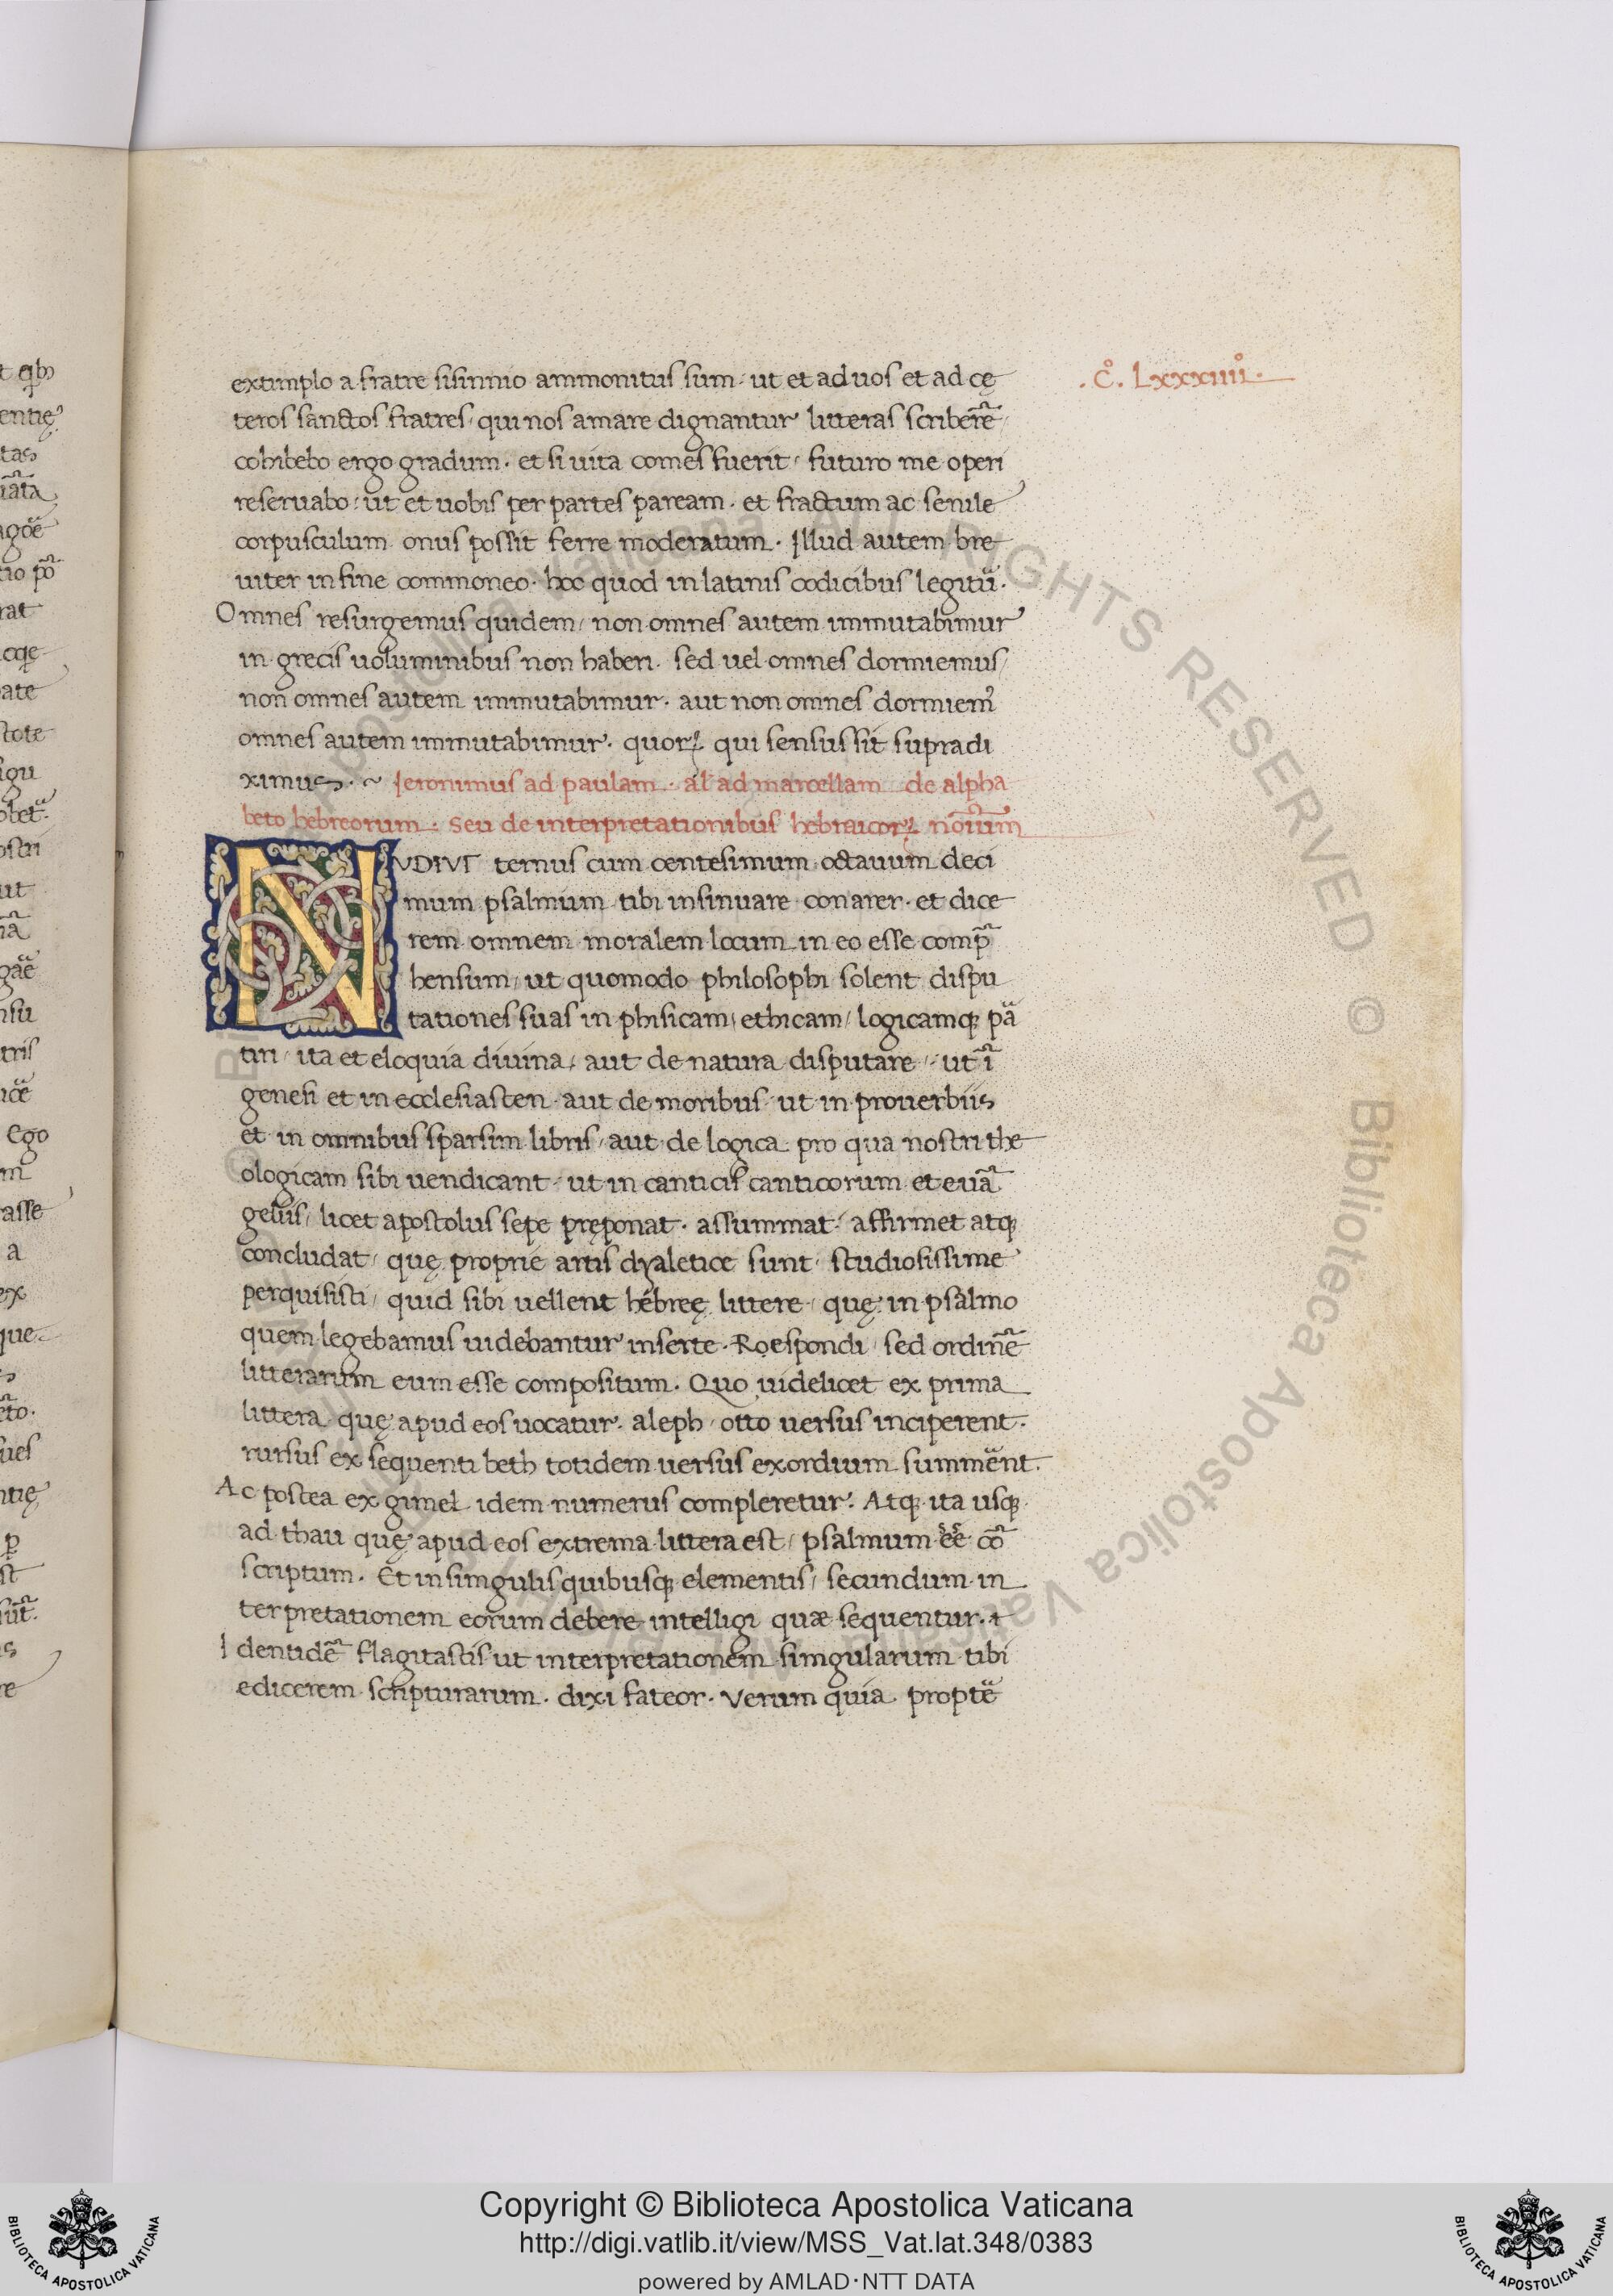 extimplo a fratre sisinnio ammonitus sum · ut et ad uos et ad cę
teros sanctos fratres / qui nos amare dignantur litteras scriberẽ /
cohibebo ergo gradum · et si uita comes fuerit / futuro me operi
reseruabo / ut et uobis per partes paream · et fractum ac senile
corpusculum onus possit ferre moderatum · Illud autem bre
uiter in fine commoneo · hoc quod in latinis codicibus legitũ ·
Omnes resurgemus quidem / non omnes autem immutabimur
in grecis uoluminibus non haberi · sed uel omnes dormiemus /
non omnes autem immutabimur · aut non omnes dormiem᾽
omnes autem immutabimur · quoꝝ qui sensus sit supradi
ximus · ~ Ieronimus ad paulam · al̃ ad marcellam de alpha
beto hebreorum · seu de interpretationibus hebraicoꝝ noĩum
NVDIVT tertius cum centesimum octauum deci
mum psalmum tibi insinuare conarer · et dice
rem omnem moralem locum in eo esse comp̃
hensum / ut quomodo philosophi solent dispu
tationes suas in phisicam / ethicam / logicamqꝫ pã
tiri / ita et eloquia diuina / aut de natura disputare / ut ĩ
genesi et in ecclesiasten · aut de moribus / ut in prouerbiis
et in omnibus sparsim libris / aut de logica pro qua nostri the
ologicam sibi uendicant / ut in canticis canticorum et euã
geliis / licet apostolus sepe pręponat · assummat / affirmet atqꝫ
concludat / quę proprie artis dyaletice sunt / studiosissime
perquisisti / quid sibi uellent hebreę littere / quę in psalmo
quem legebamus uidebantur inserte · Roespondi / sed ordinẽ
litterarum eum esse compositum · Quo uidelicet ex prima
littera quę apud eos uocatur · aleph / otto uersus inciperent ·
rursus ex sequenti beth totidem uersus exordium summẽnt ·
Ac postea ex gimel idem numerus compleretur · Atqꝫ ita usqꝫ
ad thau quę apud eos extrema littera est / psalmum ẽẽ cõ
scriptum · Et in simgulis quibusqꝫ elementis / secundum in
terpretationem eorum debere intelligi quæ sequentur ·
Identidẽ flagitastis ut interpretationem simgularum tibi
edicerem scripturarum · dixi fateor · Verum quia proptẽ
. c̊. Lxxxiiii̊ .
Copyright © Biblioteca Apostolica Vaticana
http://digi.vatlib.it/view/MSS_Vat.lat.348/0383
powered by AMLAD·NTT DATA
BIBLIOTECA APOSTOLICA VATICANA
BIBLIOTECA APOSTOLICA VATICANA